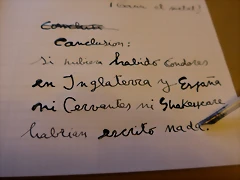 Conclusion:
Si hubiera habido Condores
en Inglaterra y España
ni Cervantes ni Shakeypeare
habrían escrito nada.